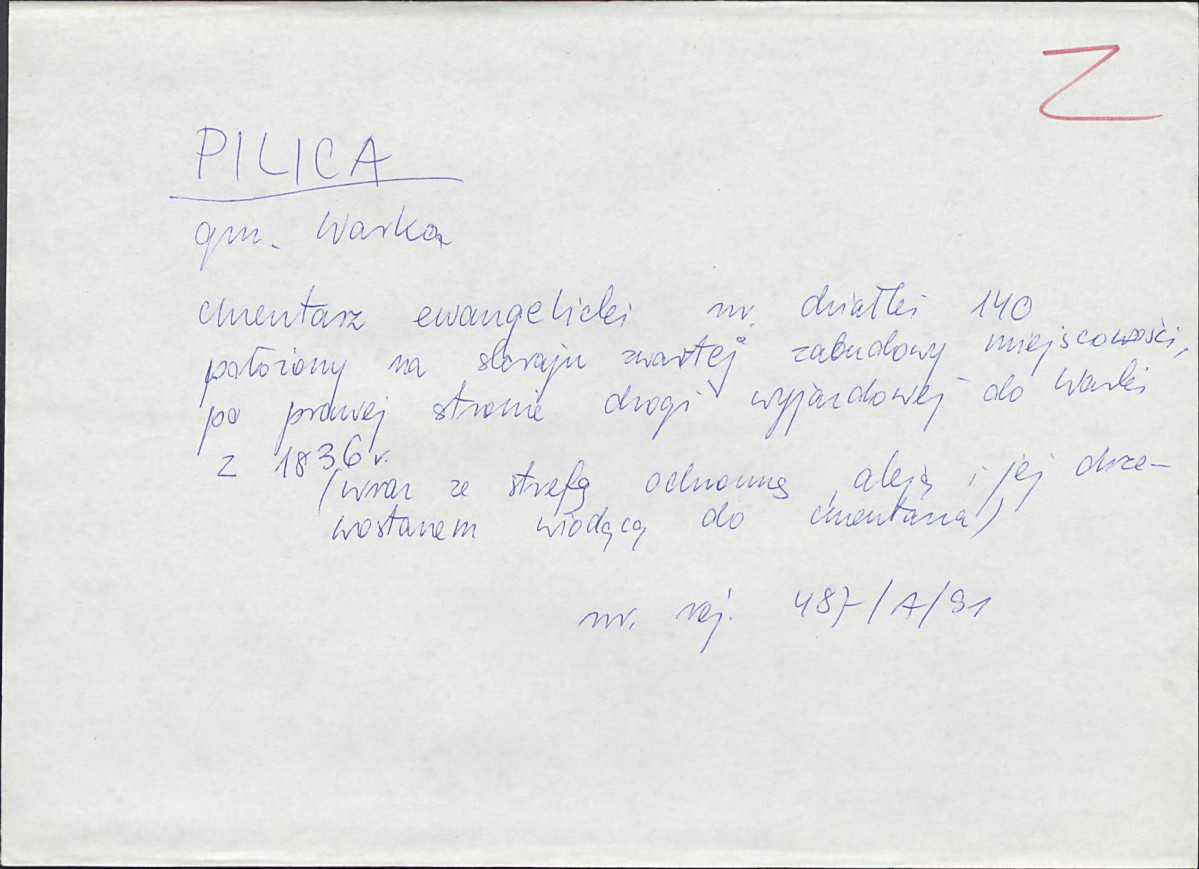 Z
PILICA
gm. Warka
cmentarz ewangelicki nr. działki 140
położony na skraju zwartej zabudowy miejscowości,
po prawej stronie drogi wyjazdowej do Warki
z 1836 r.
(wraz ze strefą ochronną, aleją i jej drze-
wostanem wiodącą do cmentarza)
nr. rej. 487/A/91